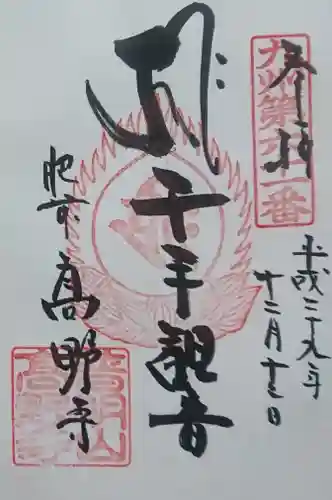 奉拝
九州第六十一番
平成二十九年
十二月十二日
千手観音
肥前
高野寺